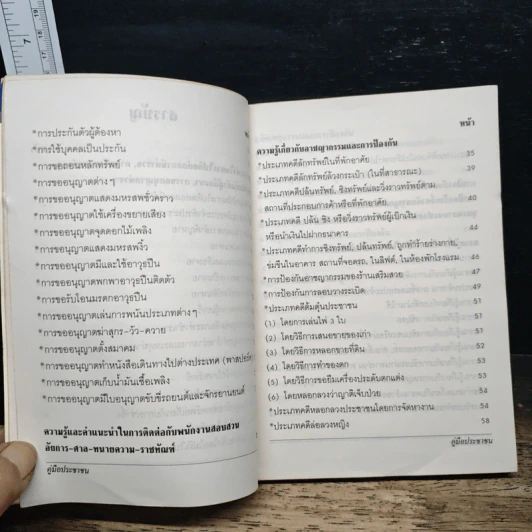 *การประกันตัวผู้ต้องหา
*การใช้บุคคลเป็นประกัน
*การขอถอนหลักทรัพย์
*การขออนุญาตต่างๆ
*การขออนุญาตแสดงมหรสพชั่วคราว
*การขออนุญาตใช้เครื่องขยายเสียง
*การขออนุญาตจุดดอกไม้เพลิง
*การขออนุญาตแสดงมหรสพงิ้ว
*การขออนุญาตมีและใช้อาวุธปืน
*การขออนุญาตพกพาอาวุธปืนติดตัว
*การขอรับโอนมรดกอาวุธปืน
*การขออนุญาตเล่นการพนันประเภทต่างๆ
*การขออนุญาตฆ่าสุกร-วัว-ควาย
*การขออนุญาตตั้งสมาคม
*การขออนุญาตทำหนังสือเดินทางไปต่างประเทศ
*การขออนุญาตเก็บน้ำมันเชื้อเพลิง
*การขออนุญาตมีใบอนุญาตขับขี่รถยนต์และจักรยานยนต์
ความรู้และคำแนะนำในการติดต่อกับพนักงานสอบสวน
อัยการ-ศาล-ทนายความ-ราชทัณฑ์
คู่มือประชาชน
หน้า
ความรู้เกี่ยวกับอาชญากรรมและการป้องกัน
*ประเภทคดีลักทรัพย์ในที่พักอาศัย 35
*ประเภทคดีลักทรัพย์ล้วงกระเป๋า (ในที่สาธารณะ) 39
*ประเภทคดีปล้นทรัพย์, ชิงทรัพย์และวิ่งราวทรัพย์ตาม
สถานที่ประกอบการค้าหรือที่พักอาศัย 40
*ประเภทคดี ปล้น ชิง หรือวิ่งราวทรัพย์ผู้เบิกเงิน
หรือนำเงินไปฝากธนาคาร
*ประเภทคดีทำการชิงทรัพย์, ปล้นทรัพย์, ถูกทำร้ายร่างกาย, 44
ข่มขืนในอาคาร สถานที่จอดรถ, ในลิฟต์, ในห้องพักโรงแรม 46
*การป้องกันอาชญากรรมของร้านเสริมสวย 47
*การป้องกันการลอบวางระเบิด 49
*ประเภทคดีต้มตุ๋นประชาชน 51
(1) โดยการเล่นไพ่ 3 ใบ 51
(2) โดยวิธีการเสนอขายของเก่า 51
(3) โดยวิธีการหลอกขายที่ดิน 52
(4) โดยวิธีการทำของตก 52
(5) โดยวิธีการขอยืมเครื่องประดับตกแต่ง 53
(6) โดยหลอกลวงว่าญาติเจ็บป่วย 54
*ประเภทคดีหลอกลวงประชาชนโดยการจัดหางาน 54
*ประเภทคดีล่อลวงหญิง 58
คู่มือประชาชน